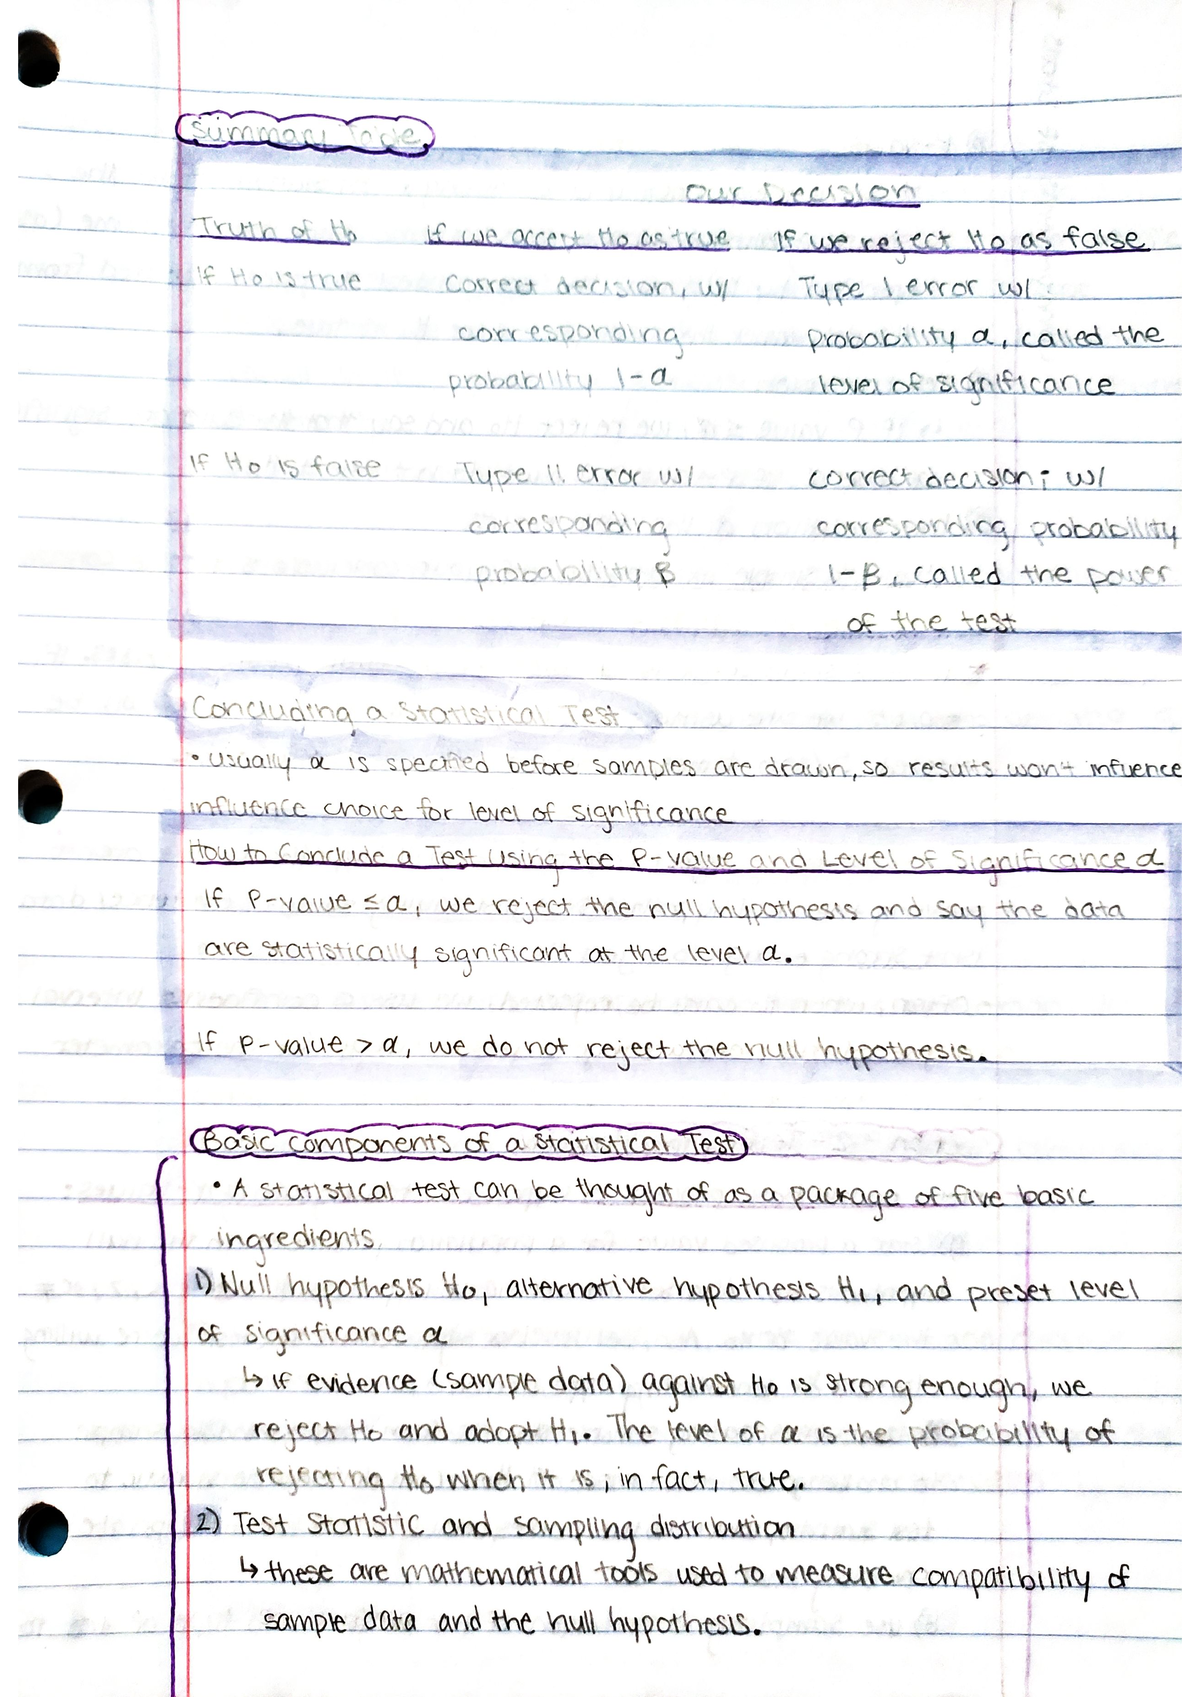 Summary Table
Our Decision
Truth of H₀ If we accept H₀ as true If we reject H₀ as false
If H₀ is true Correct decision, w/ Type I error w/
corresponding probability α, called the
probability 1-α level of significance
If H₀ is false Type II error w/ correct decision; w/
corresponding corresponding probability
probability β 1-β, called the power
of the test
Concluding a Statistical Test
• Usually α is specified before samples are drawn, so results won't infuence
influence choice for level of significance
How to Conclude a Test Using the P-value and Level of Significance α
If P-value ≤ α, we reject the null hypothesis and say the data
are statistically significant at the level α.
If P-value > α, we do not reject the null hypothesis.
Basic Components of a Statistical Test
• A statistical test can be thought of as a package of five basic
ingredients.
1) Null hypothesis H₀, alternative hypothesis H₁, and preset level
of significance α
↳ If evidence (sample data) against H₀ is strong enough, we
reject H₀ and adopt H₁. The level of α is the probability of
rejecting H₀ when it is, in fact, true.
2) Test Statistic and sampling distribution
↳ these are mathematical tools used to measure compatibility of
sample data and the null hypothesis.